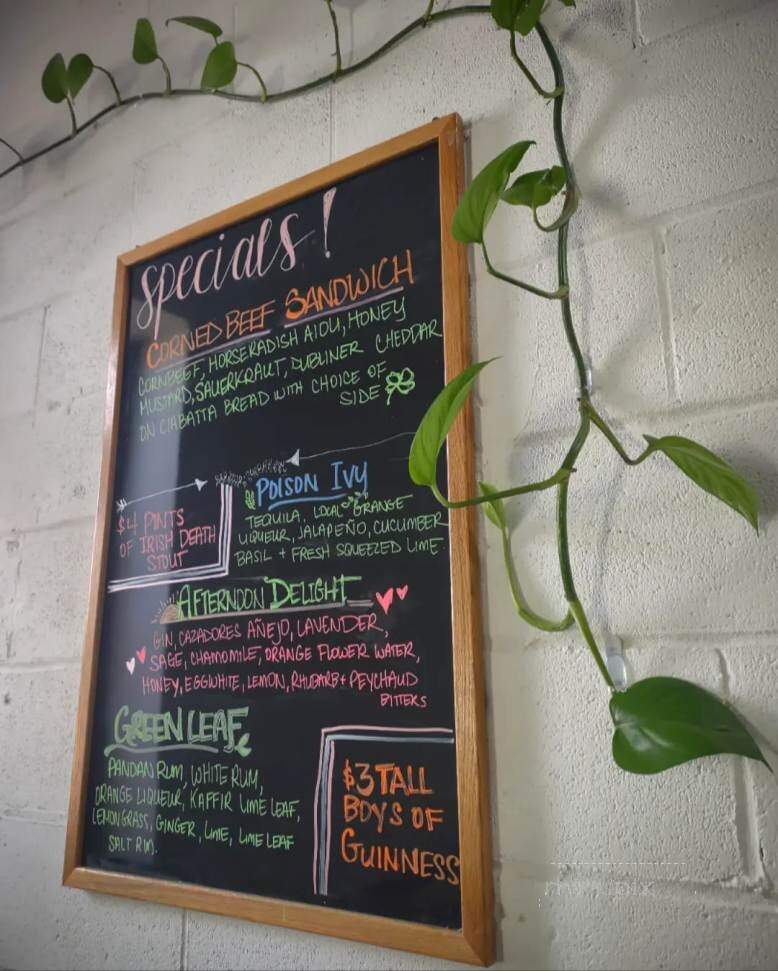 Specials!
CORNED BEEF SANDWICH
CORNBEEF, HORSERADISH AIOLI, HONEY
MUSTARD, SAUERKRAUT, DUBLINER CHEDDAR
ON CIABATTA BREAD WITH CHOICE OF
SIDE
$4 PINTS
OF IRISH DEATH
STOUT
POISON IVY
TEQUILA, LOCAL ORANGE
LIQUEUR, JALAPEÑO, CUCUMBER
BASIL + FRESH SQUEEZED LIME
AFTERNOON DELIGHT
GIN, CAZADORES AÑEJO, LAVENDER,
SAGE, CHAMOMILE, ORANGE FLOWER WATER,
HONEY, EGGWHITE, LEMON, RHUBARB + PEYCHAUD
BITTERS
GREEN LEAF
PANDAN RUM, WHITE RUM,
ORANGE LIQUEUR, KAFFIR LIME LEAF,
LEMONGRASS, GINGER, LIME, LIME LEAF
SALT RIM.
$3 TALL
BOYS OF
GUINNESS